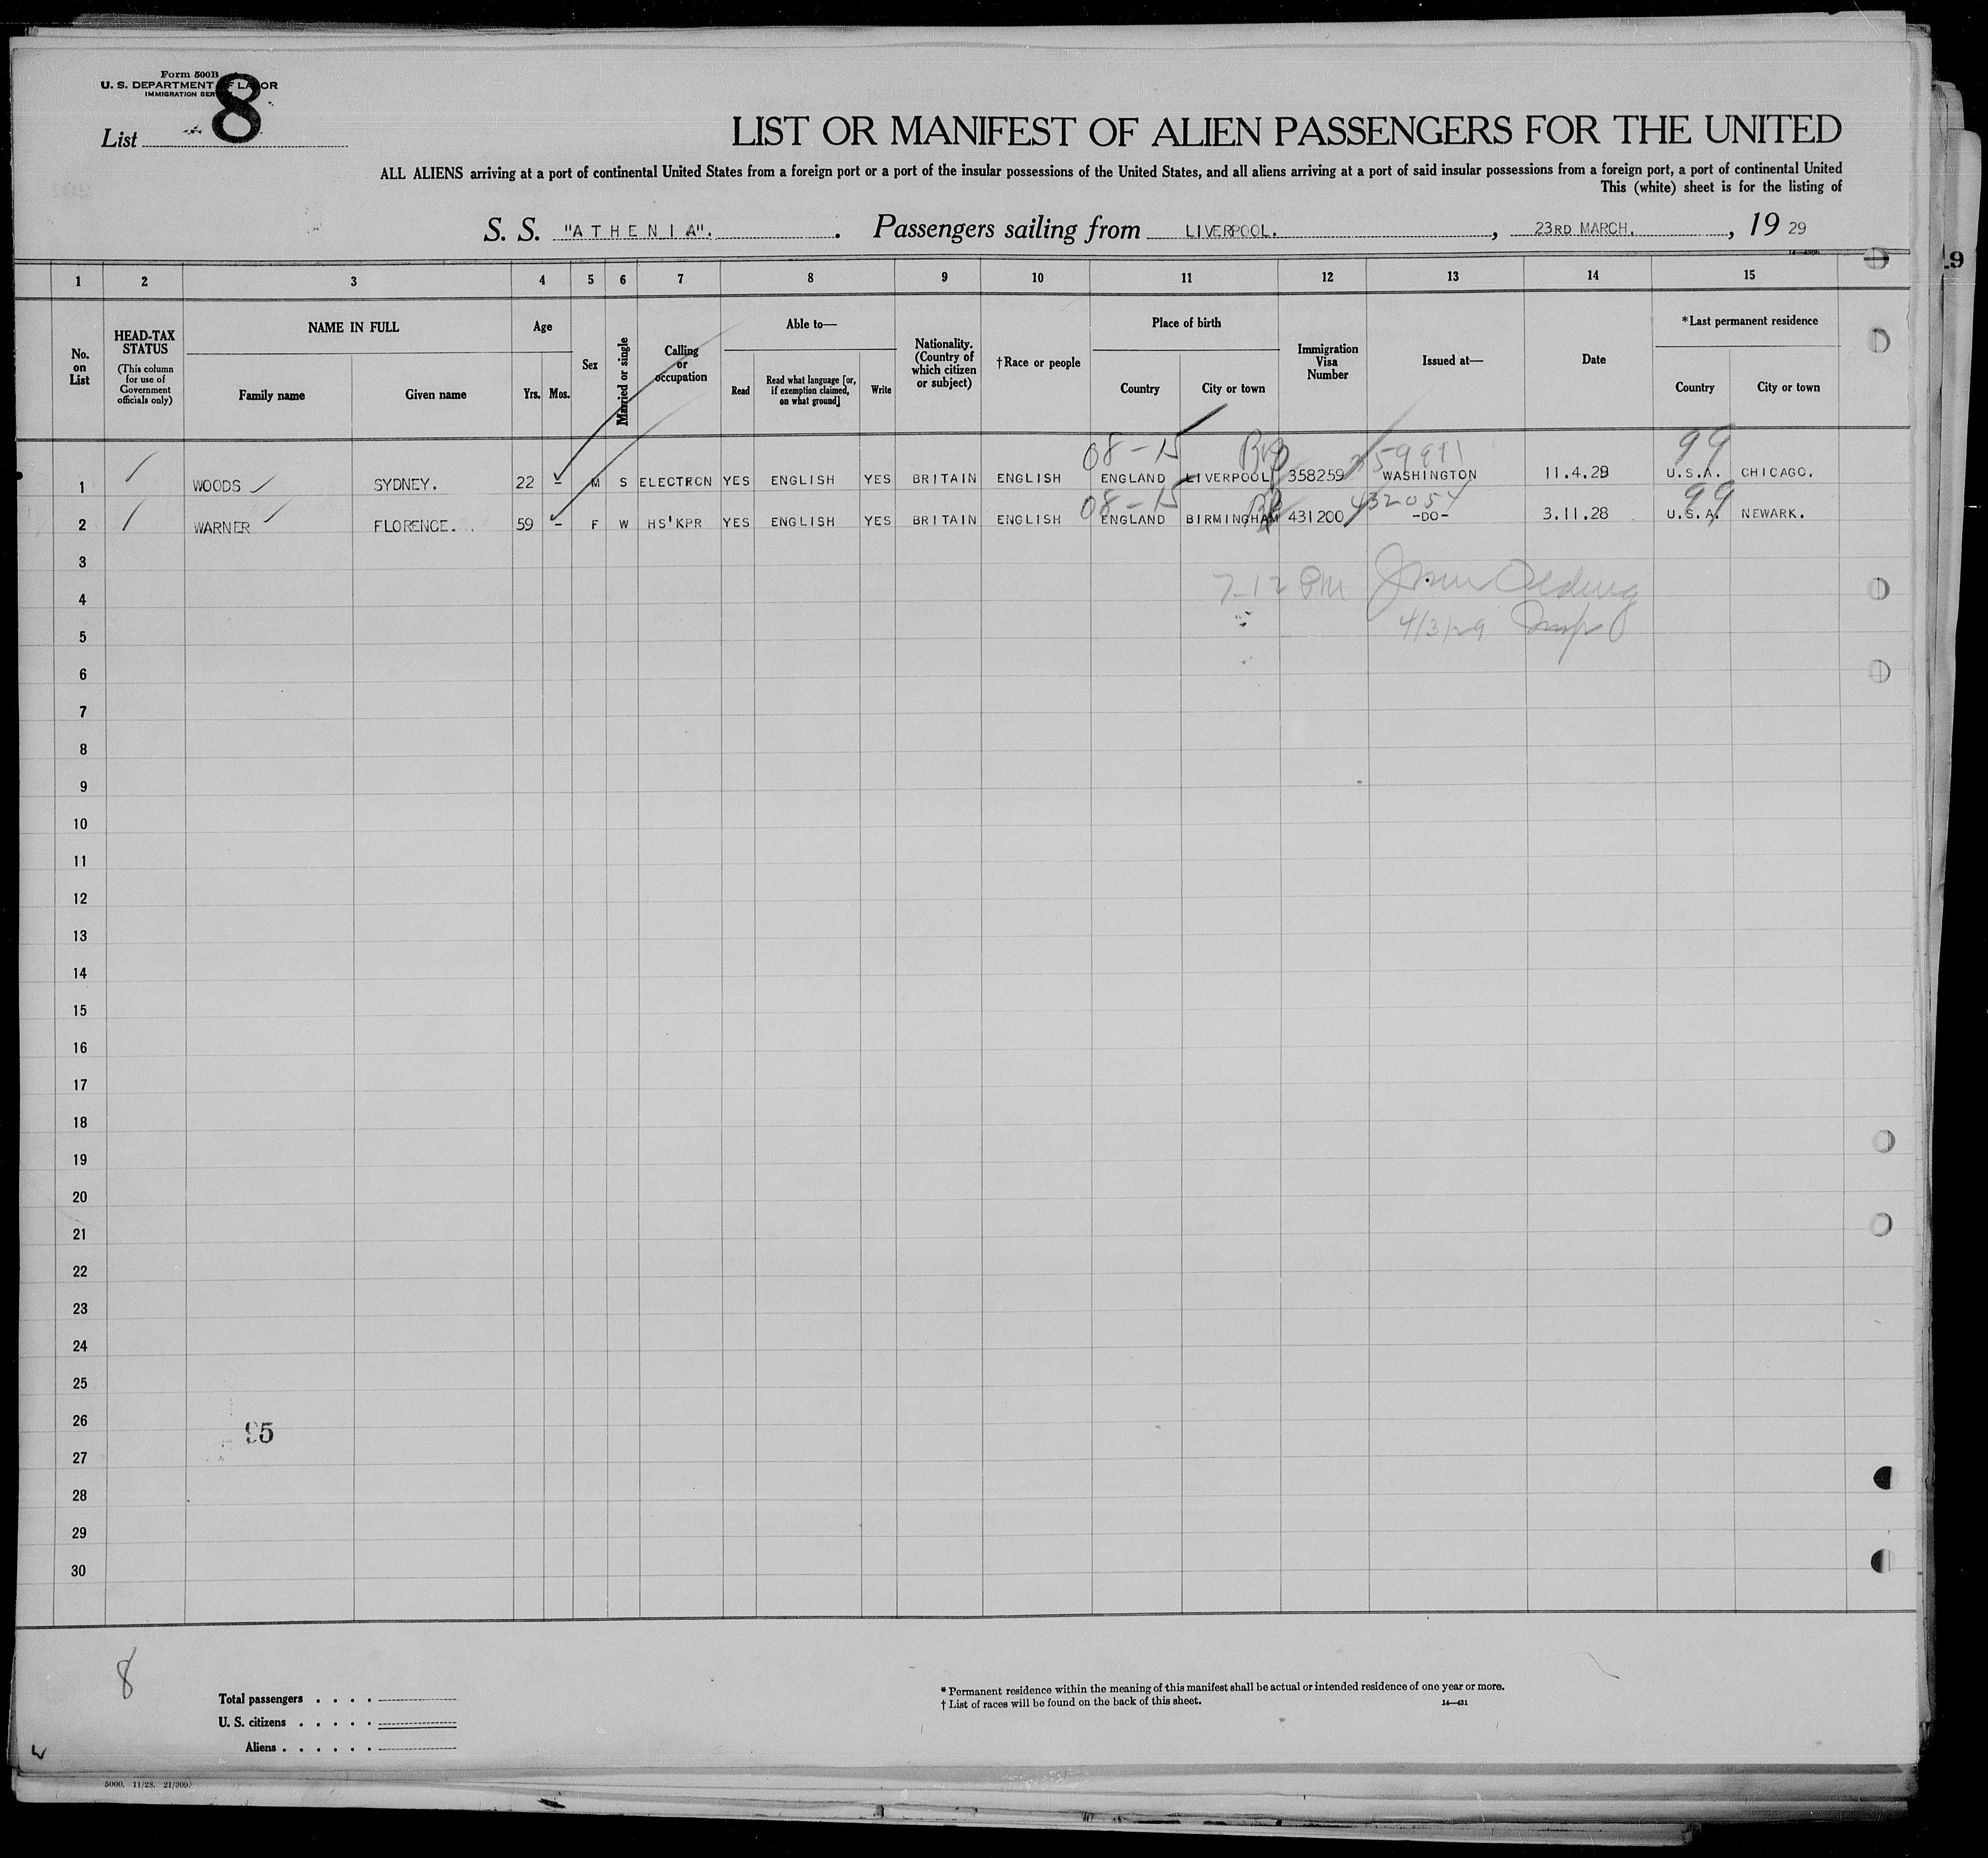 Form 500B
U. S. DEPARTMENT OF LABOR
IMMIGRATION SER
8
List
LIST OR MANIFEST OF ALIEN PASSENGERS FOR THE UNITED
ALL ALIENS arriving at a port of continental United States from a foreign port or a port of the insular possessions of the United States, and all aliens arriving at a port of said insular possessions from a foreign port, a port of continental United
This (white) sheet is for the listing of
S. S. "ATHENIA". Passengers sailing from LIVERPOOL. , 23RD MARCH. , 19 29
9
1 2 3 4 5 6 7 8 9 10 11 12 13 14 15
No. on List
HEAD-TAX STATUS (This column for use of Government officials only)
NAME IN FULL
Family name Given name
Age
Yrs. Mos.
Sex
Married or single
Calling or occupation
Able to—
Read Read what language [or, if exemption claimed, on what ground] Write
Nationality. (Country of which citizen or subject)
†Race or people
Place of birth
Country City or town
Immigration Visa Number
Issued at—
Date
*Last permanent residence
Country City or town
08-15 99
1 WOODS SYDNEY. 22 - M S ELECTRCN YES ENGLISH YES BRITAIN ENGLISH ENGLAND LIVERPOOL 358259 WASHINGTON 11.4.28 U.S.A. CHICAGO.
08-15 432054 99
2 WARNER FLORENCE. 59 - F W HS'KPR YES ENGLISH YES BRITAIN ENGLISH ENGLAND BIRMINGHAM 431200 -DO- 3.11.28 U.S.A. NEWARK.
3
7-12 PM
4
4/3/29 Insp
5
6
7
8
9
10
11
12
13
14
15
16
17
18
19
20
21
22
23
24
25
26
95
27
28
29
30
8
Total passengers . . . .
U. S. citizens . . . . .
Aliens . . . . . .
* Permanent residence within the meaning of this manifest shall be actual or intended residence of one year or more.
† List of races will be found on the back of this sheet. 14—431
5000. 11/28. 21/309.